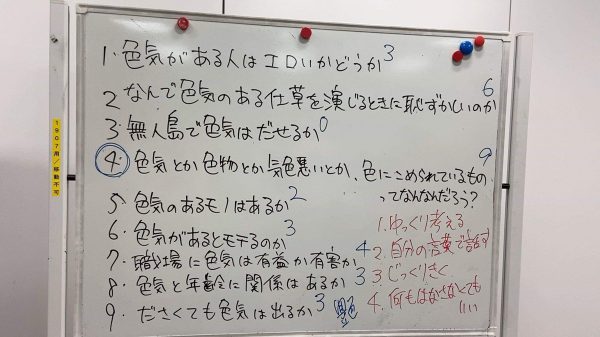 1. 色気がある人はエロいかどうか 3
2 なんで色気のある仕草を演じるときに恥ずかしいのか 6
3. 無人島で色気はだせるか 0
4. 色気とか色物とか気色悪いとか、色にこめられているもの 9
ってなんなんだろう?
5 色気のあるモノはあるか 2
6. 色気があるとモテるのか 3
7. 職場に色気は有益か有害か 4
8. 色気と年齢に関係はあるか 3
9. ださくても色気は出るか 3
1. ゆっくり考える
2. 自分の言葉で話す
3. じっくりきく
4. 何もはなさなくても
いい
1907用/移動不可